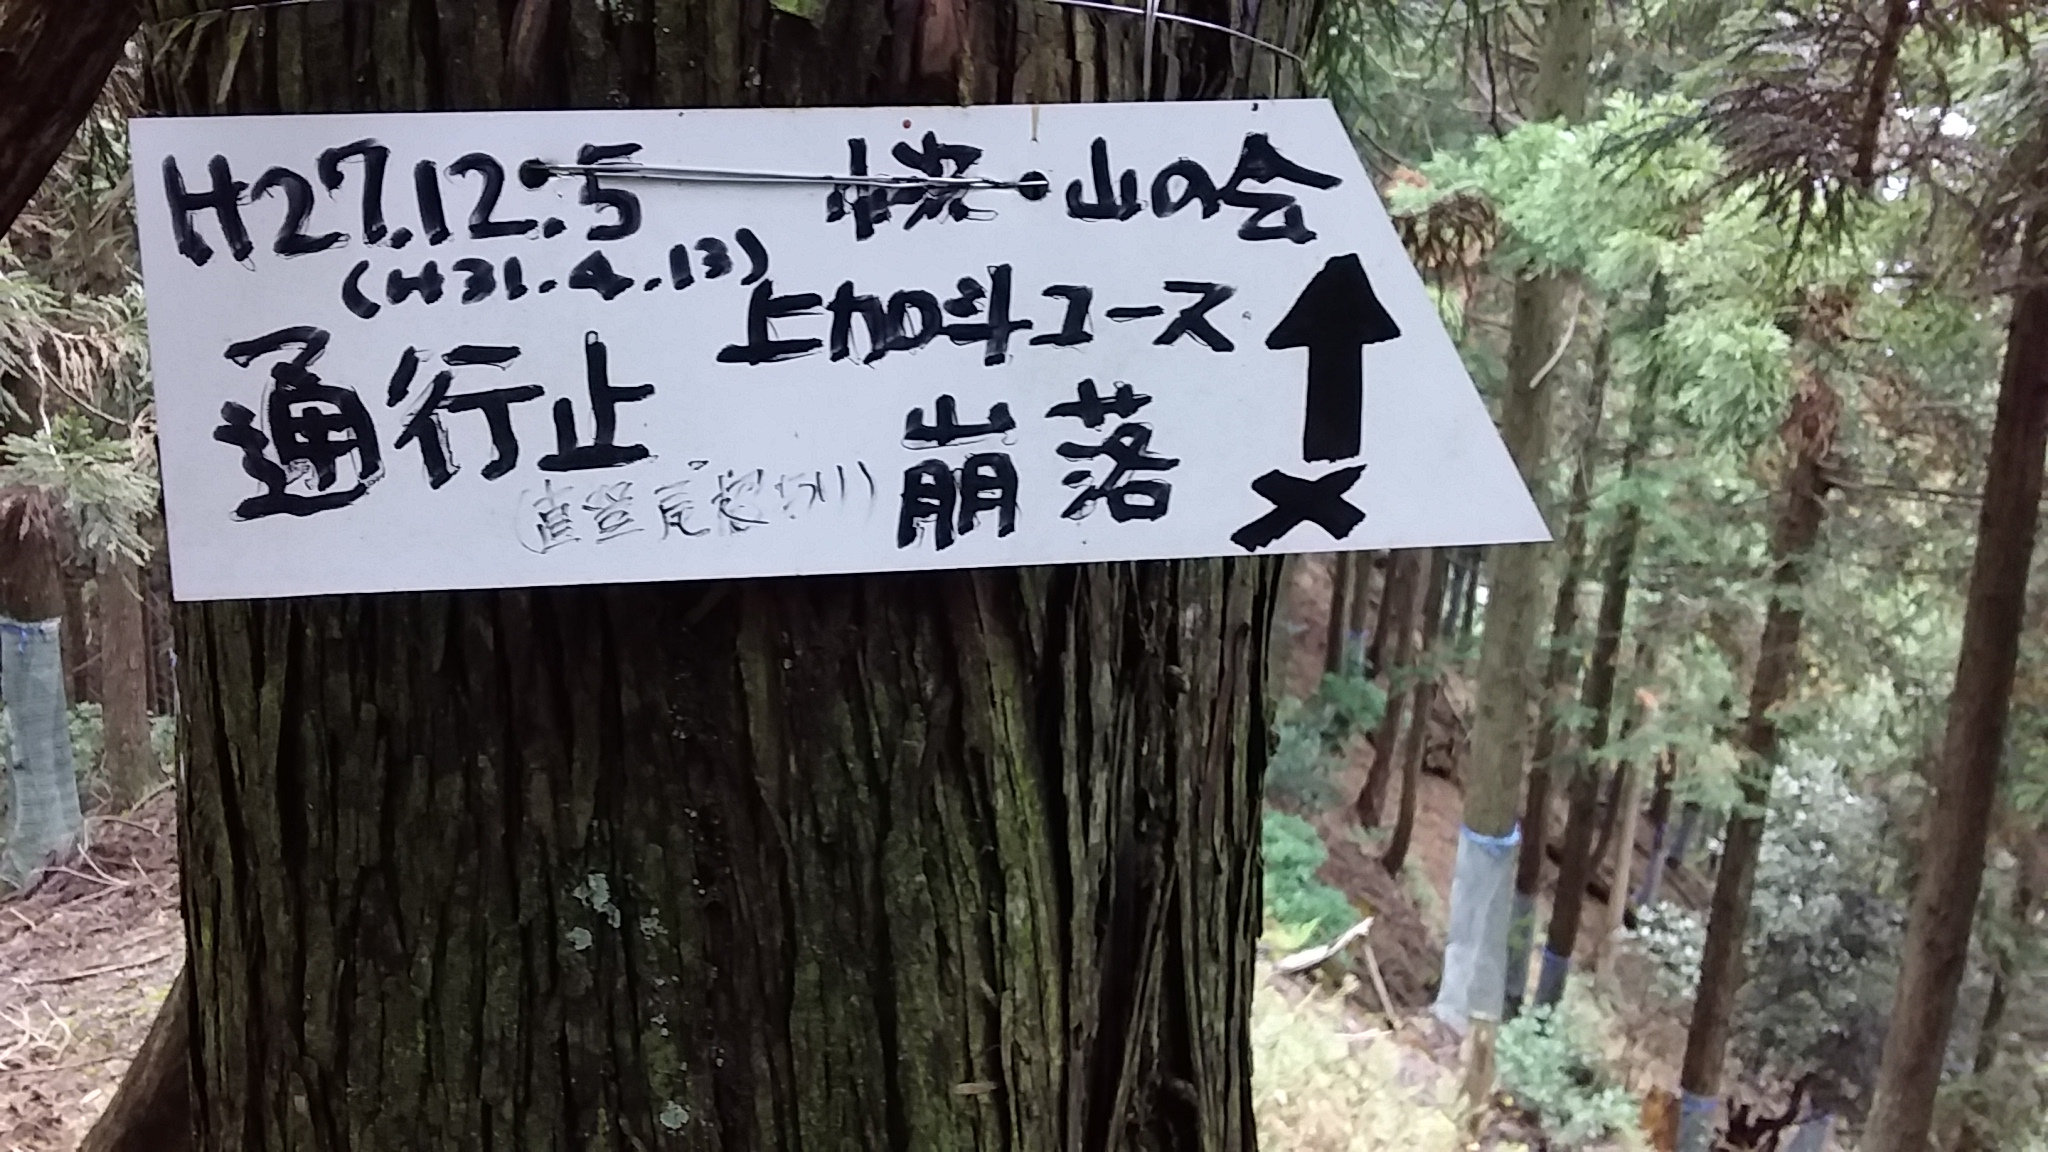 H27.12.5 山の会
(H31.4.13)
上加斗コース
通行止
崩落
×